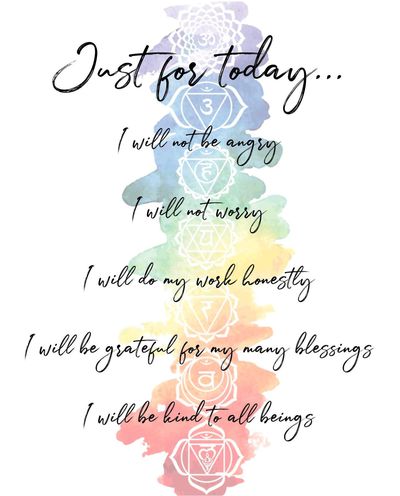 Just for today...
I will not be angry
I will not worry
I will do my work honestly
I will be grateful for my many blessings
I will be kind to all beings